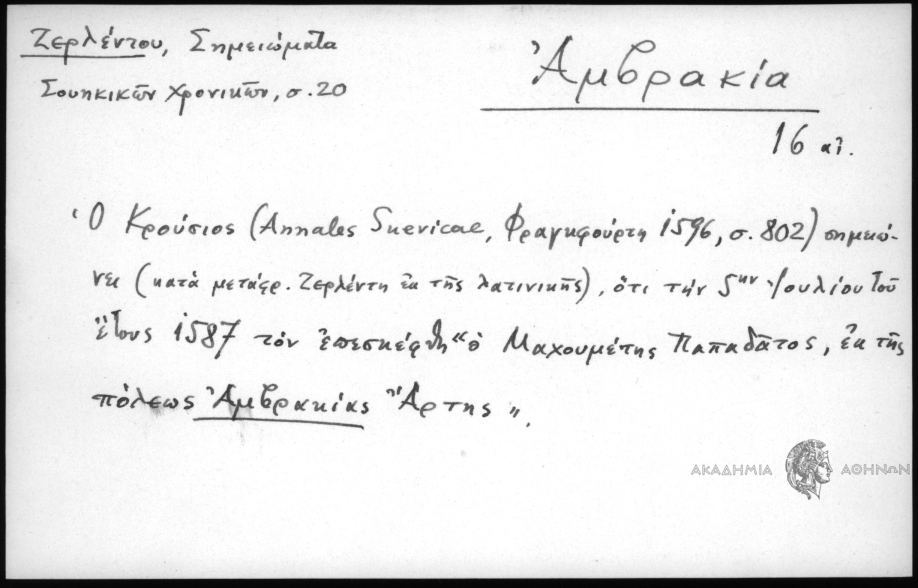 Ζερλέντου, Σημειώματα
Σουηκικῶν χρονικῶν, σ. 20
Ἀμβρακία
16 αἰ.
Ὁ Κρούσιος (Annales Suevicae, Φραγκφούρτη 1596, σ. 802) σημειώ-
νει (κατά μετάφρ. Ζερλέντη ἐκ τῆς λατινικῆς), ὅτι τήν 5ην Ἰουλίου τοῦ
ἔτους 1587 τόν ἐπεσκέφθη "ὁ Μαχουμέτης Παπαδᾶτος, ἐκ τῆς
πόλεως Ἀμβρακίας Ἄρτης".
ΑΚΑΔΗΜΙΑ ΑΘΗΝΩΝ